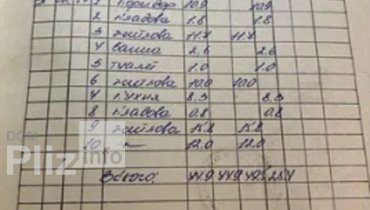 1 коридор 10.9 10.9
2 кладова 1.8 1.8
3 житлова 11.7 11.7
4 ванна 2.6 2.6
5 туалет 1.0 1.0
6 житлова 10.0 10.0
7 кухня 8.3 8.3
8 кладова 0.8 0.8
9 житлова 15.8 15.8
10 —"— 12.0 12.0
Всього:
DOM
Pliz info